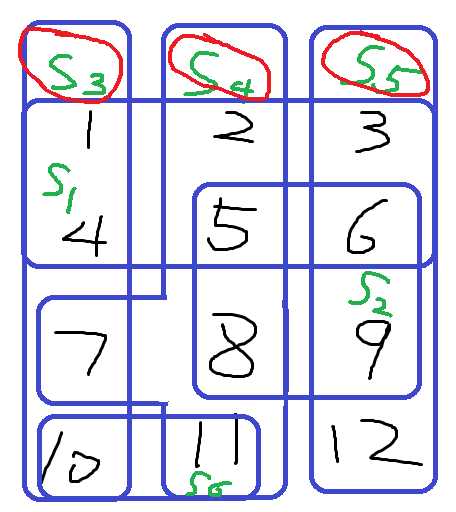 S3 S4 S5
1 2 3
S1
4 5 6
S2
7 8 9
10 11 12
S6